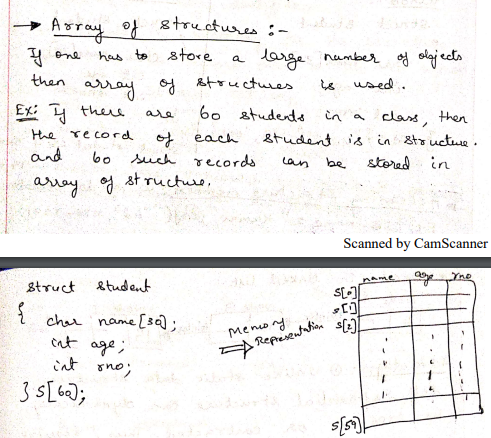 → Array of structures :-
If one has to store a large number of objects
then array of structures is used.
Ex: If there are 60 students in a class, then
the record of each student is in structure.
and 60 such records can be stored in
array of structure.
Scanned by CamScanner
struct student
{ char name[30];
int age;
int rno;
} s[60];
Memory
Representation
name age rno
s[0]
s[1]
s[2]
s[59]